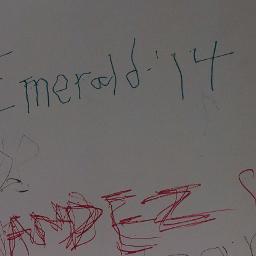 Emerald '14
AMDEZ